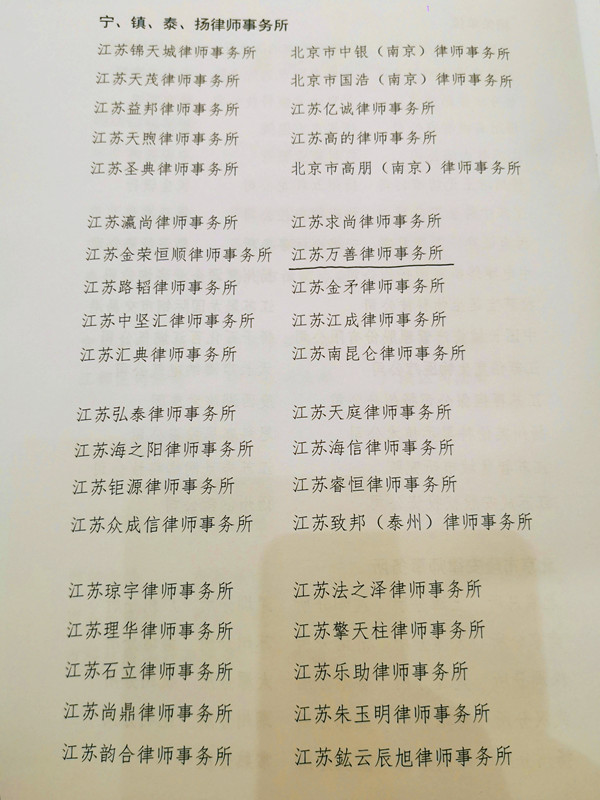 宁、镇、泰、扬律师事务所
江苏锦天城律师事务所 北京市中银（南京）律师事务所
江苏天茂律师事务所 北京市国浩（南京）律师事务所
江苏益邦律师事务所 江苏亿诚律师事务所
江苏天煦律师事务所 江苏高的律师事务所
江苏圣典律师事务所 北京市高朋（南京）律师事务所
江苏瀛尚律师事务所 江苏求尚律师事务所
江苏金荣恒顺律师事务所 江苏万善律师事务所
江苏路韬律师事务所 江苏金矛律师事务所
江苏中坚汇律师事务所 江苏江成律师事务所
江苏汇典律师事务所 江苏南昆仑律师事务所
江苏弘泰律师事务所 江苏天庭律师事务所
江苏海之阳律师事务所 江苏海信律师事务所
江苏钜源律师事务所 江苏睿恒律师事务所
江苏众成信律师事务所 江苏致邦（泰州）律师事务所
江苏琼宇律师事务所 江苏法之泽律师事务所
江苏理华律师事务所 江苏擎天柱律师事务所
江苏石立律师事务所 江苏乐助律师事务所
江苏尚鼎律师事务所 江苏朱玉明律师事务所
江苏韵合律师事务所 江苏鈜云辰旭律师事务所